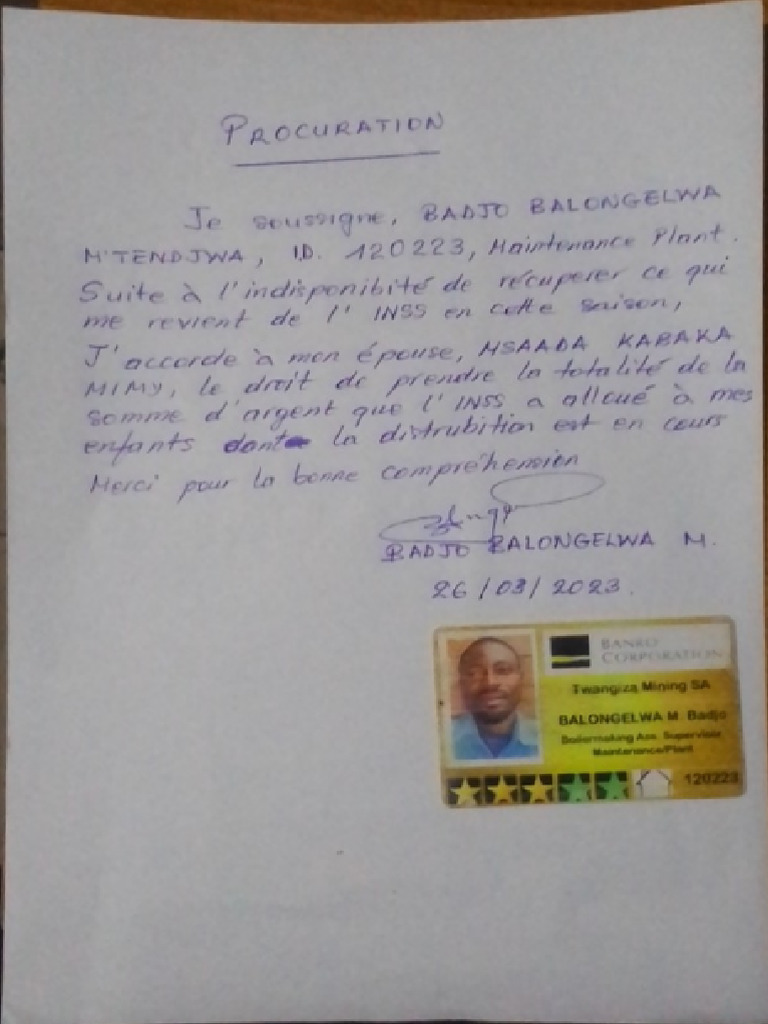 PROCURATION
Je soussigne, BADJO BALONGELWA
M'TENDJWA, ID. 120223, Maintenance Plant.
Suite à l'indisponibité de récuperer ce qui
me revient de l' INSS en cette saison,
J'accorde à mon épouse, MSAADA KABAKA
MIMY, le droit de prendre la totalité de la
somme d'argent que l'INSS a alloué à mes
enfants dont la distrubition est en cours
Merci pour la bonne compréhension
BADJO BALONGELWA M.
26/03/2023.
BANRO
CORPORATION
Twangiza Mining SA
BALONGELWA M. Badjo
Boilermaking Ass. Supervisor
Maintenance/Plant
120223